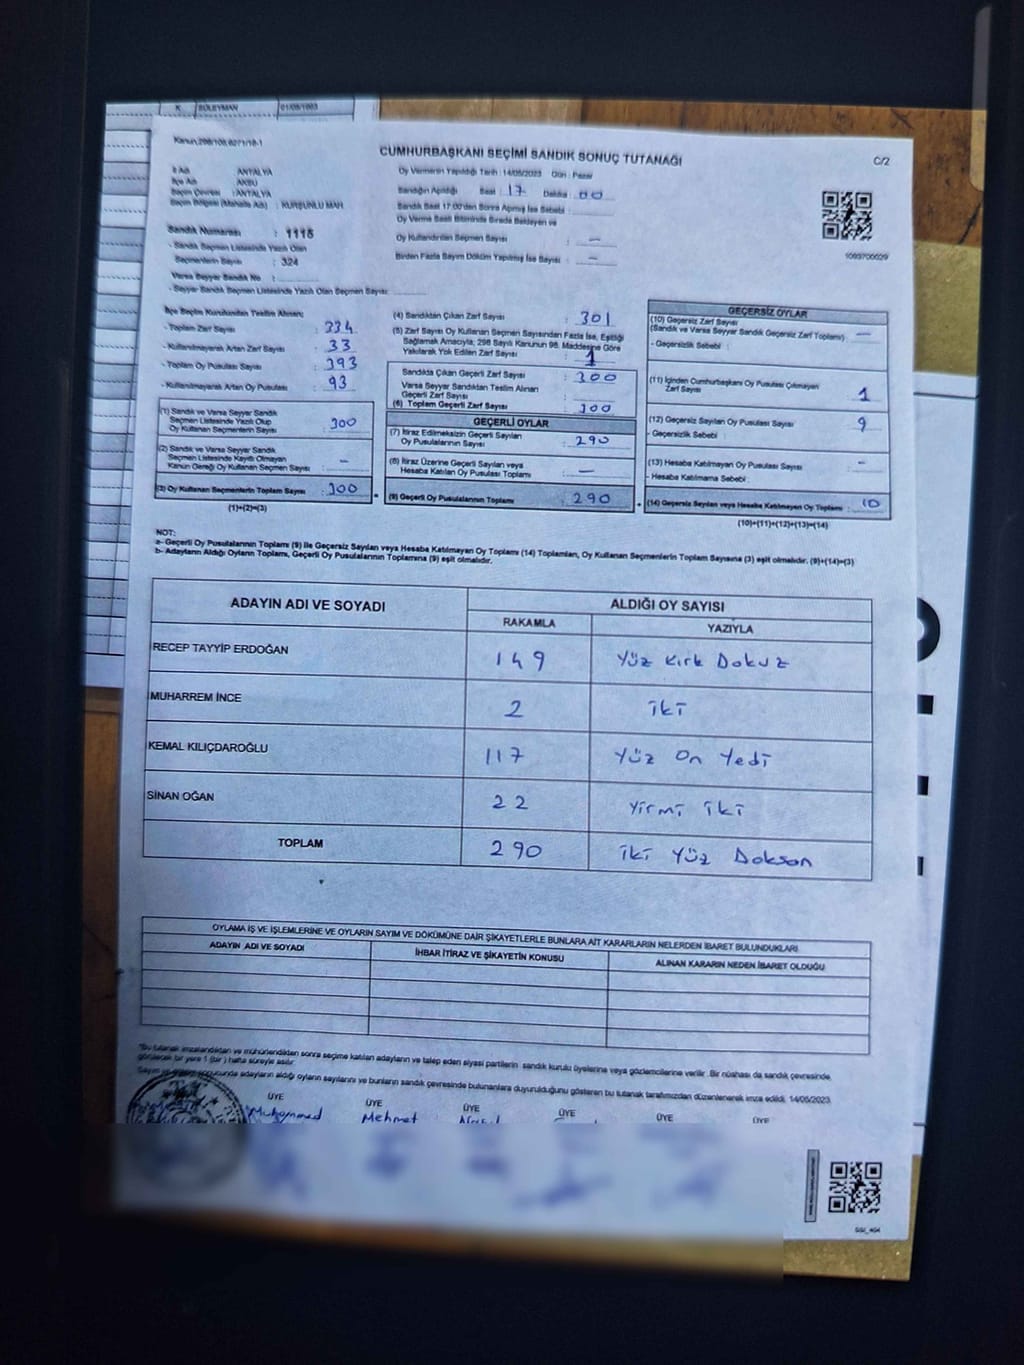 K SÜLEYMAN 01/05/1963
CUMHURBAŞKANI SEÇİMİ SANDIK SONUÇ TUTANAĞI
C/2
İl Adı : ANTALYA
İlçe Adı : AKSU
Seçim Çevresi : ANTALYA
Seçim Bölgesi (Mahalle Adı) : KURŞUNLU MAH.
Oy Vermenin Yapıldığı Tarih : 14/05/2023 Gün : Pazar
Sandığın Açıldığı Saat : 17 Dakika : 00
Sandık Saat 17:00'den Sonra Açılmış İse Sebebi :
Oy Verme Saati Bitiminde Sırada Bekleyen ve
Oy Kullandırılan Seçmen Sayısı : -
Birden Fazla Sayım Döküm Yapılmış İse Sayısı : -
1093700029
Sandık Numarası : 1115
- Sandık Seçmen Listesinde Yazılı Olan
Seçmenlerin Sayısı : 324
Varsa Seyyar Sandık No :
- Seyyar Sandık Seçmen Listesinde Yazılı Olan Seçmen Sayısı:
İlçe Seçim Kurulundan Teslim Alınan:
- Toplam Zarf Sayısı : 334
- Kullanılmayarak Artan Zarf Sayısı : 33
- Toplam Oy Pusulası Sayısı : 393
- Kullanılmayarak Artan Oy Pusulası : 93
(1) Sandık ve Varsa Seyyar Sandık
Seçmen Listesinde Yazılı Olup
Oy Kullanan Seçmenlerin Sayısı : 300
(2) Sandık ve Varsa Seyyar Sandık
Seçmen Listesinde Kayıtlı Olmayan
Kanun Gereği Oy Kullanan Seçmen Sayısı : -
(3) Oy Kullanan Seçmenlerin Toplam Sayısı : 300
(1)+(2)=(3)
(4) Sandıktan Çıkan Zarf Sayısı : 301
(5) Zarf Sayısı Oy Kullanan Seçmen Sayısından Fazla İse, Eşitliği
Sağlamak Amacıyla, 298 Sayılı Kanunun 98. Maddesine Göre
Yakılarak Yok Edilen Zarf Sayısı : 1
Sandıkta Çıkan Geçerli Zarf Sayısı : 300
Varsa Seyyar Sandıktan Teslim Alınan
Geçerli Zarf Sayısı :
(6) Toplam Geçerli Zarf Sayısı : 300
GEÇERLİ OYLAR
(7) İtiraz Edilmeksizin Geçerli Sayılan
Oy Pusulalarının Sayısı : 290
(8) İtiraz Üzerine Geçerli Sayılan veya
Hesaba Katılan Oy Pusulası Toplamı : -
(9) Geçerli Oy Pusulalarının Toplamı : 290
GEÇERSİZ OYLAR
(10) Geçersiz Zarf Sayısı
(Sandık ve Varsa Seyyar Sandık Geçersiz Zarf Toplamı) : -
- Geçersizlik Sebebi :
(11) İçinden Cumhurbaşkanı Oy Pusulası Çıkmayan
Zarf Sayısı : 1
(12) Geçersiz Sayılan Oy Pusulası Sayısı : 9
- Geçersizlik Sebebi :
(13) Hesaba Katılmayan Oy Pusulası Sayısı : -
- Hesaba Katılmama Sebebi :
(14) Geçersiz Sayılan veya Hesaba Katılmayan Oy Toplamı : 10
(10)+(11)+(12)+(13)=(14)
NOT:
a- Geçerli Oy Pusulalarının Toplamı (9) ile Geçersiz Sayılan veya Hesaba Katılmayan Oy Toplamı (14) Toplamları, Oy Kullanan Seçmenlerin Toplam Sayısına (3) eşit olmalıdır. (9)+(14)=(3)
b- Adayların Aldığı Oyların Toplamı, Geçerli Oy Pusulalarının Toplamına (9) eşit olmalıdır.
ADAYIN ADI VE SOYADI ALDIĞI OY SAYISI
RAKAMLA YAZIYLA
RECEP TAYYİP ERDOĞAN 149 Yüz Kırk Dokuz
MUHARREM İNCE 2 İki
KEMAL KILIÇDAROĞLU 117 Yüz On Yedi
SİNAN OĞAN 22 Yirmi İki
TOPLAM 290 İki Yüz Doksan
OYLAMA İŞ VE İŞLEMLERİNE VE OYLARIN SAYIM VE DÖKÜMÜNE DAİR ŞİKAYETLERLE BUNLARA AİT KARARLARIN NELERDEN İBARET BULUNDUKLARI
ADAYIN ADI VE SOYADI İHBAR İTİRAZ VE ŞİKAYETİN KONUSU ALINAN KARARIN NEDEN İBARET OLDUĞU
"Bu tutanak imzalandıktan ve mühürlendikten sonra seçime katılan adayların ve talep eden siyasi partilerin sandık kurulu üyelerine veya gözlemcilerine verilir. Bir nüshası da sandık çevresinde
görülecek bir yere 1 (bir) hafta süreyle asılır.
sonucunda adayların aldığı oyların sayılarını ve bunların sandık çevresinde bulunanlara duyurulduğunu gösteren bu tutanak tarafımızdan düzenlenerek imza edildi. 14/05/2023
ÜYE ÜYE ÜYE ÜYE ÜYE ÜYE
Muhammed Mehmet